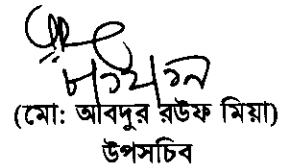 (মো: আবদুর রউফ মিয়া)
উপসচিব